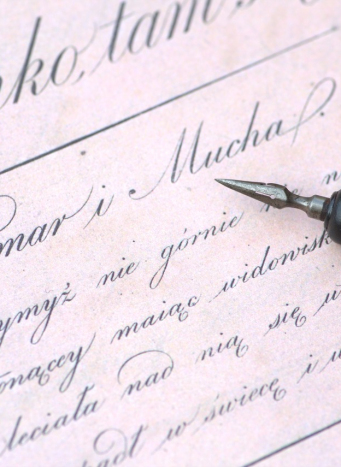 ko, tam
mar i Mucha.
ymyż nie górnie
onący maiąc widowisk
leciała nad nią się
padł w świecę i